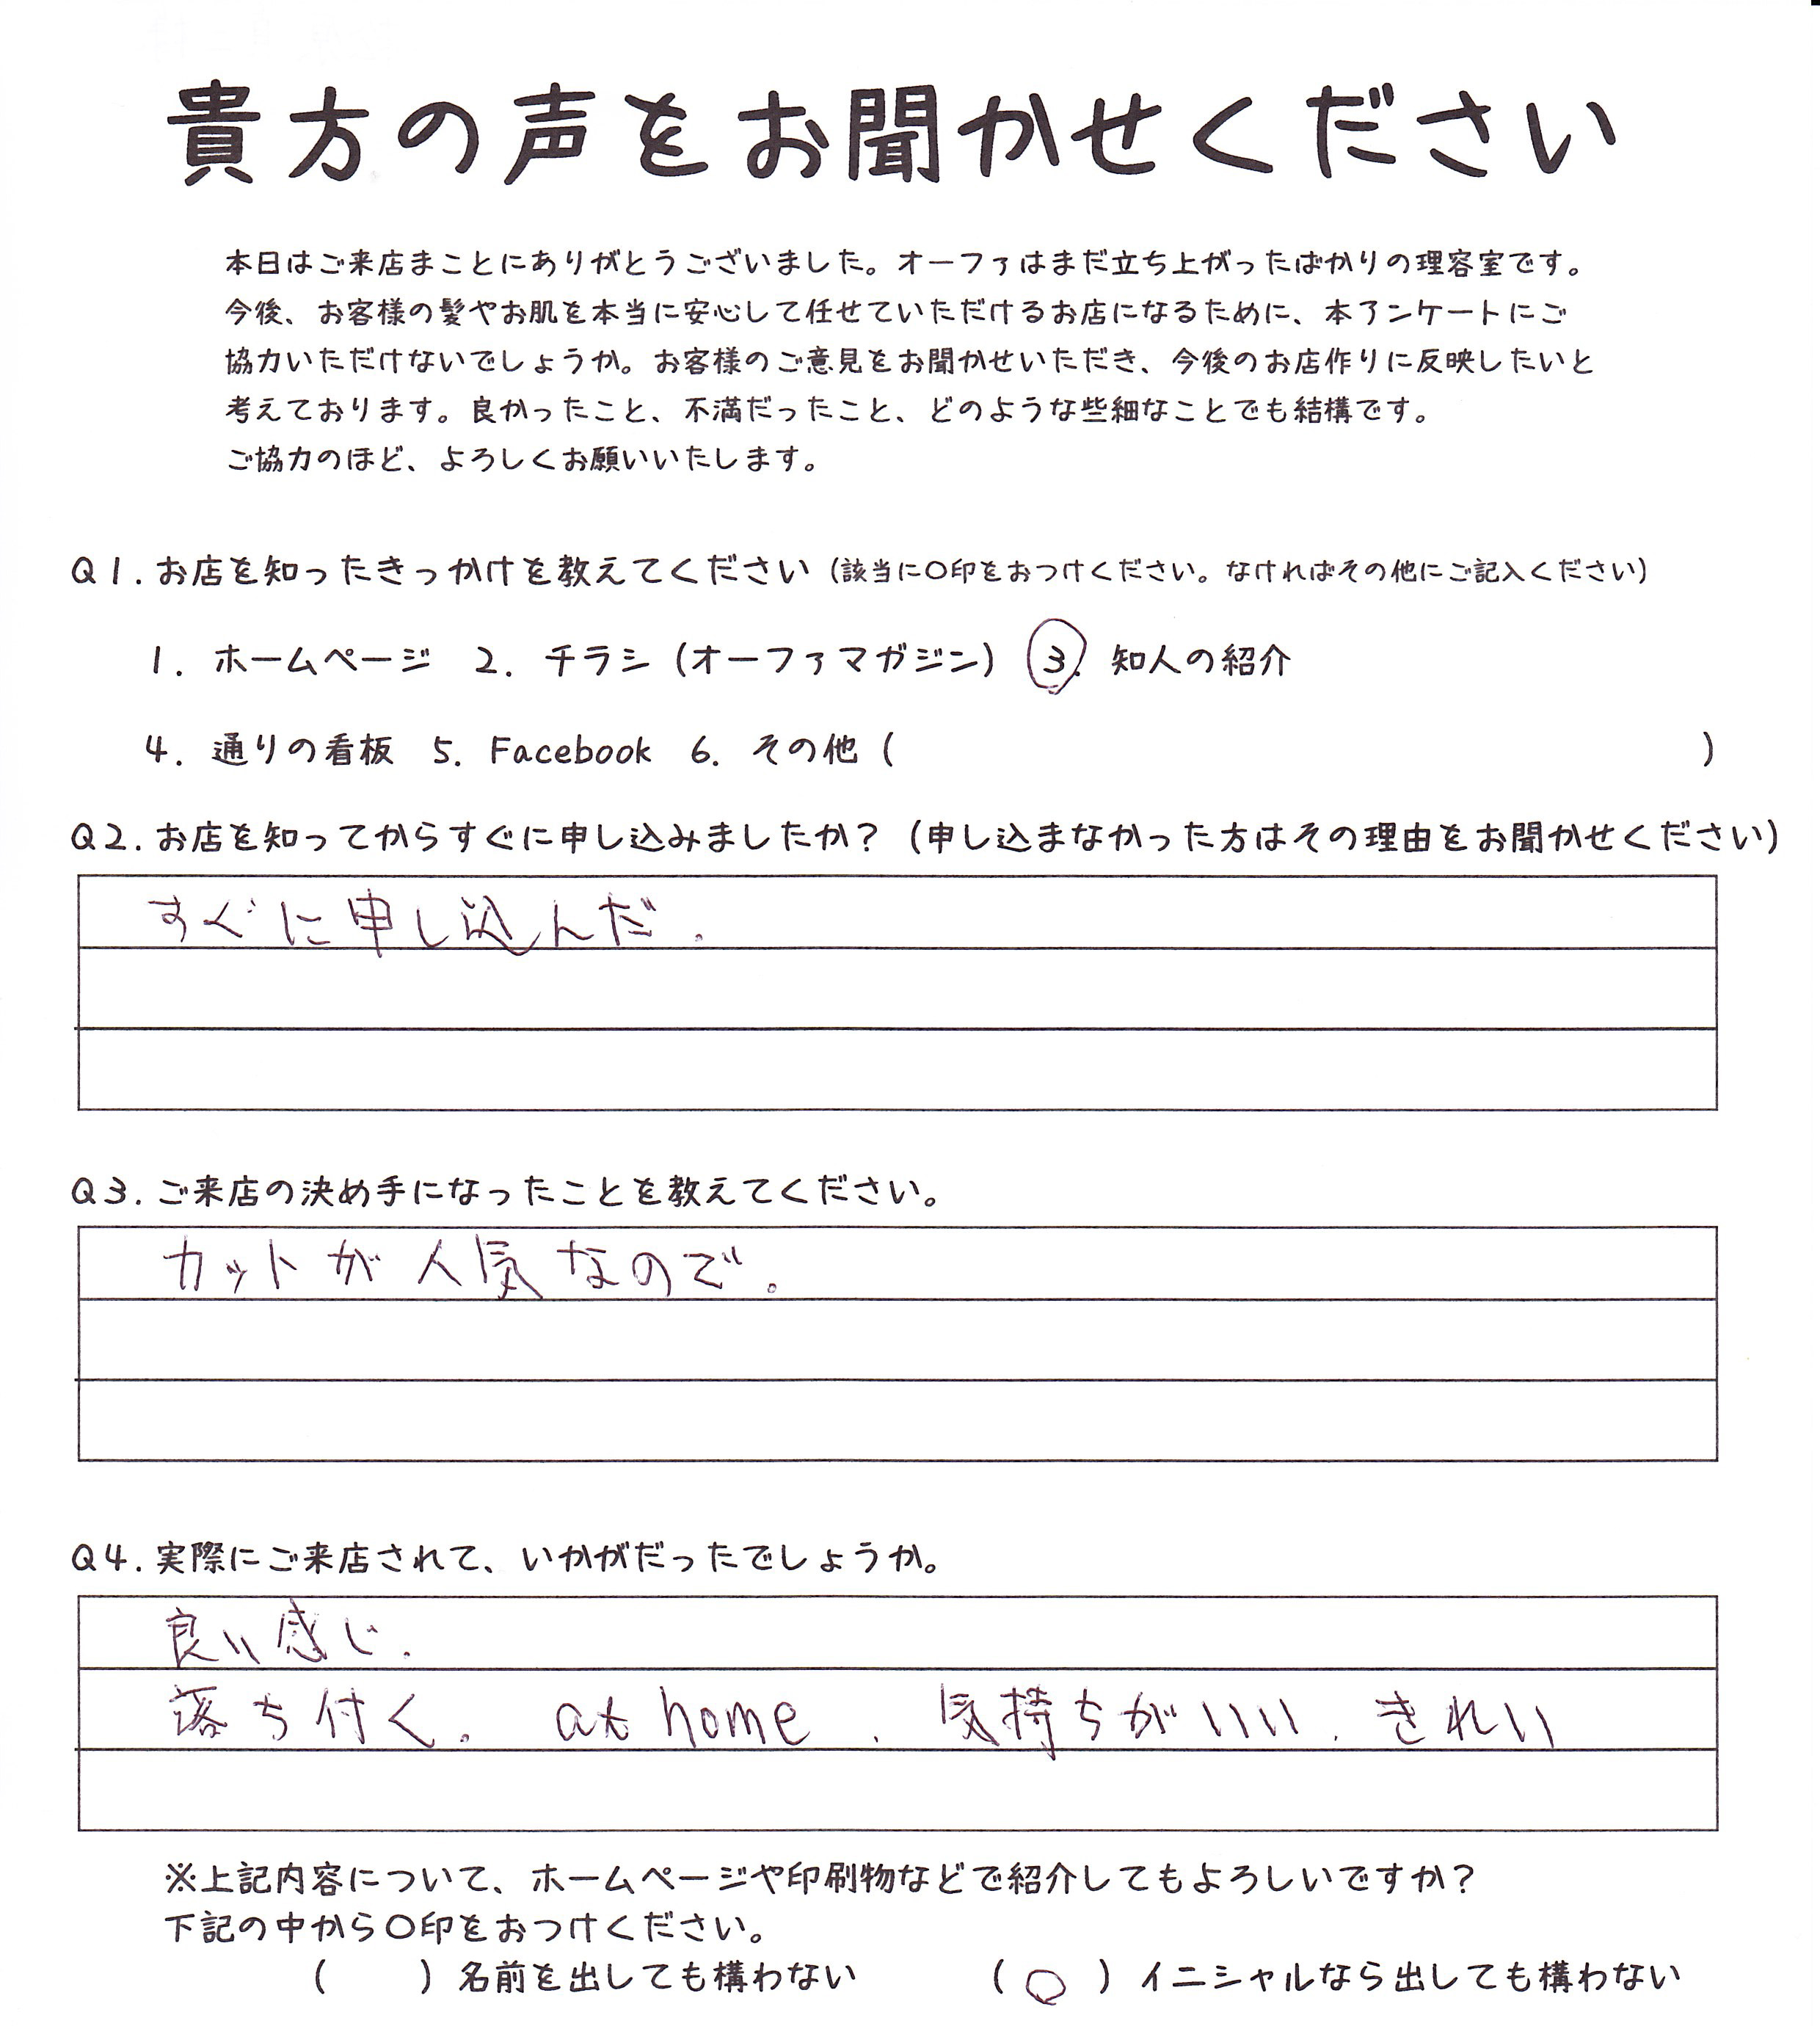 貴方の声をお聞かせください
本日はご来店まことにありがとうございました。オーファはまだ立ち上がったばかりの理容室です。
今後、お客様の髪やお肌を本当に安心して任せていただけるお店になるために、本アンケートにご
協力いただけないでしょうか。お客様のご意見をお聞かせいただき、今後のお店作りに反映したいと
考えております。良かったこと、不満だったこと、どのような些細なことでも結構です。
ご協力のほど、よろしくお願いいたします。
Q1.お店を知ったきっかけを教えてください（該当に○印をおつけください。なければその他にご記入ください）
1. ホームページ 2. チラシ（オーファマガジン） 3. 知人の紹介
4. 通りの看板 5. Facebook 6. その他（ ）
Q2.お店を知ってからすぐに申し込みましたか？（申し込まなかった方はその理由をお聞かせください）
すぐに申し込んだ.
Q3.ご来店の決め手になったことを教えてください。
カットが人気なので。
Q4.実際にご来店されて、いかがだったでしょうか。
良い感じ.
落ち付く. at home. 気持ちがいい. きれい
※上記内容について、ホームページや印刷物などで紹介してもよろしいですか？
下記の中から○印をおつけください。
（ ）名前を出しても構わない （○）イニシャルなら出しても構わない